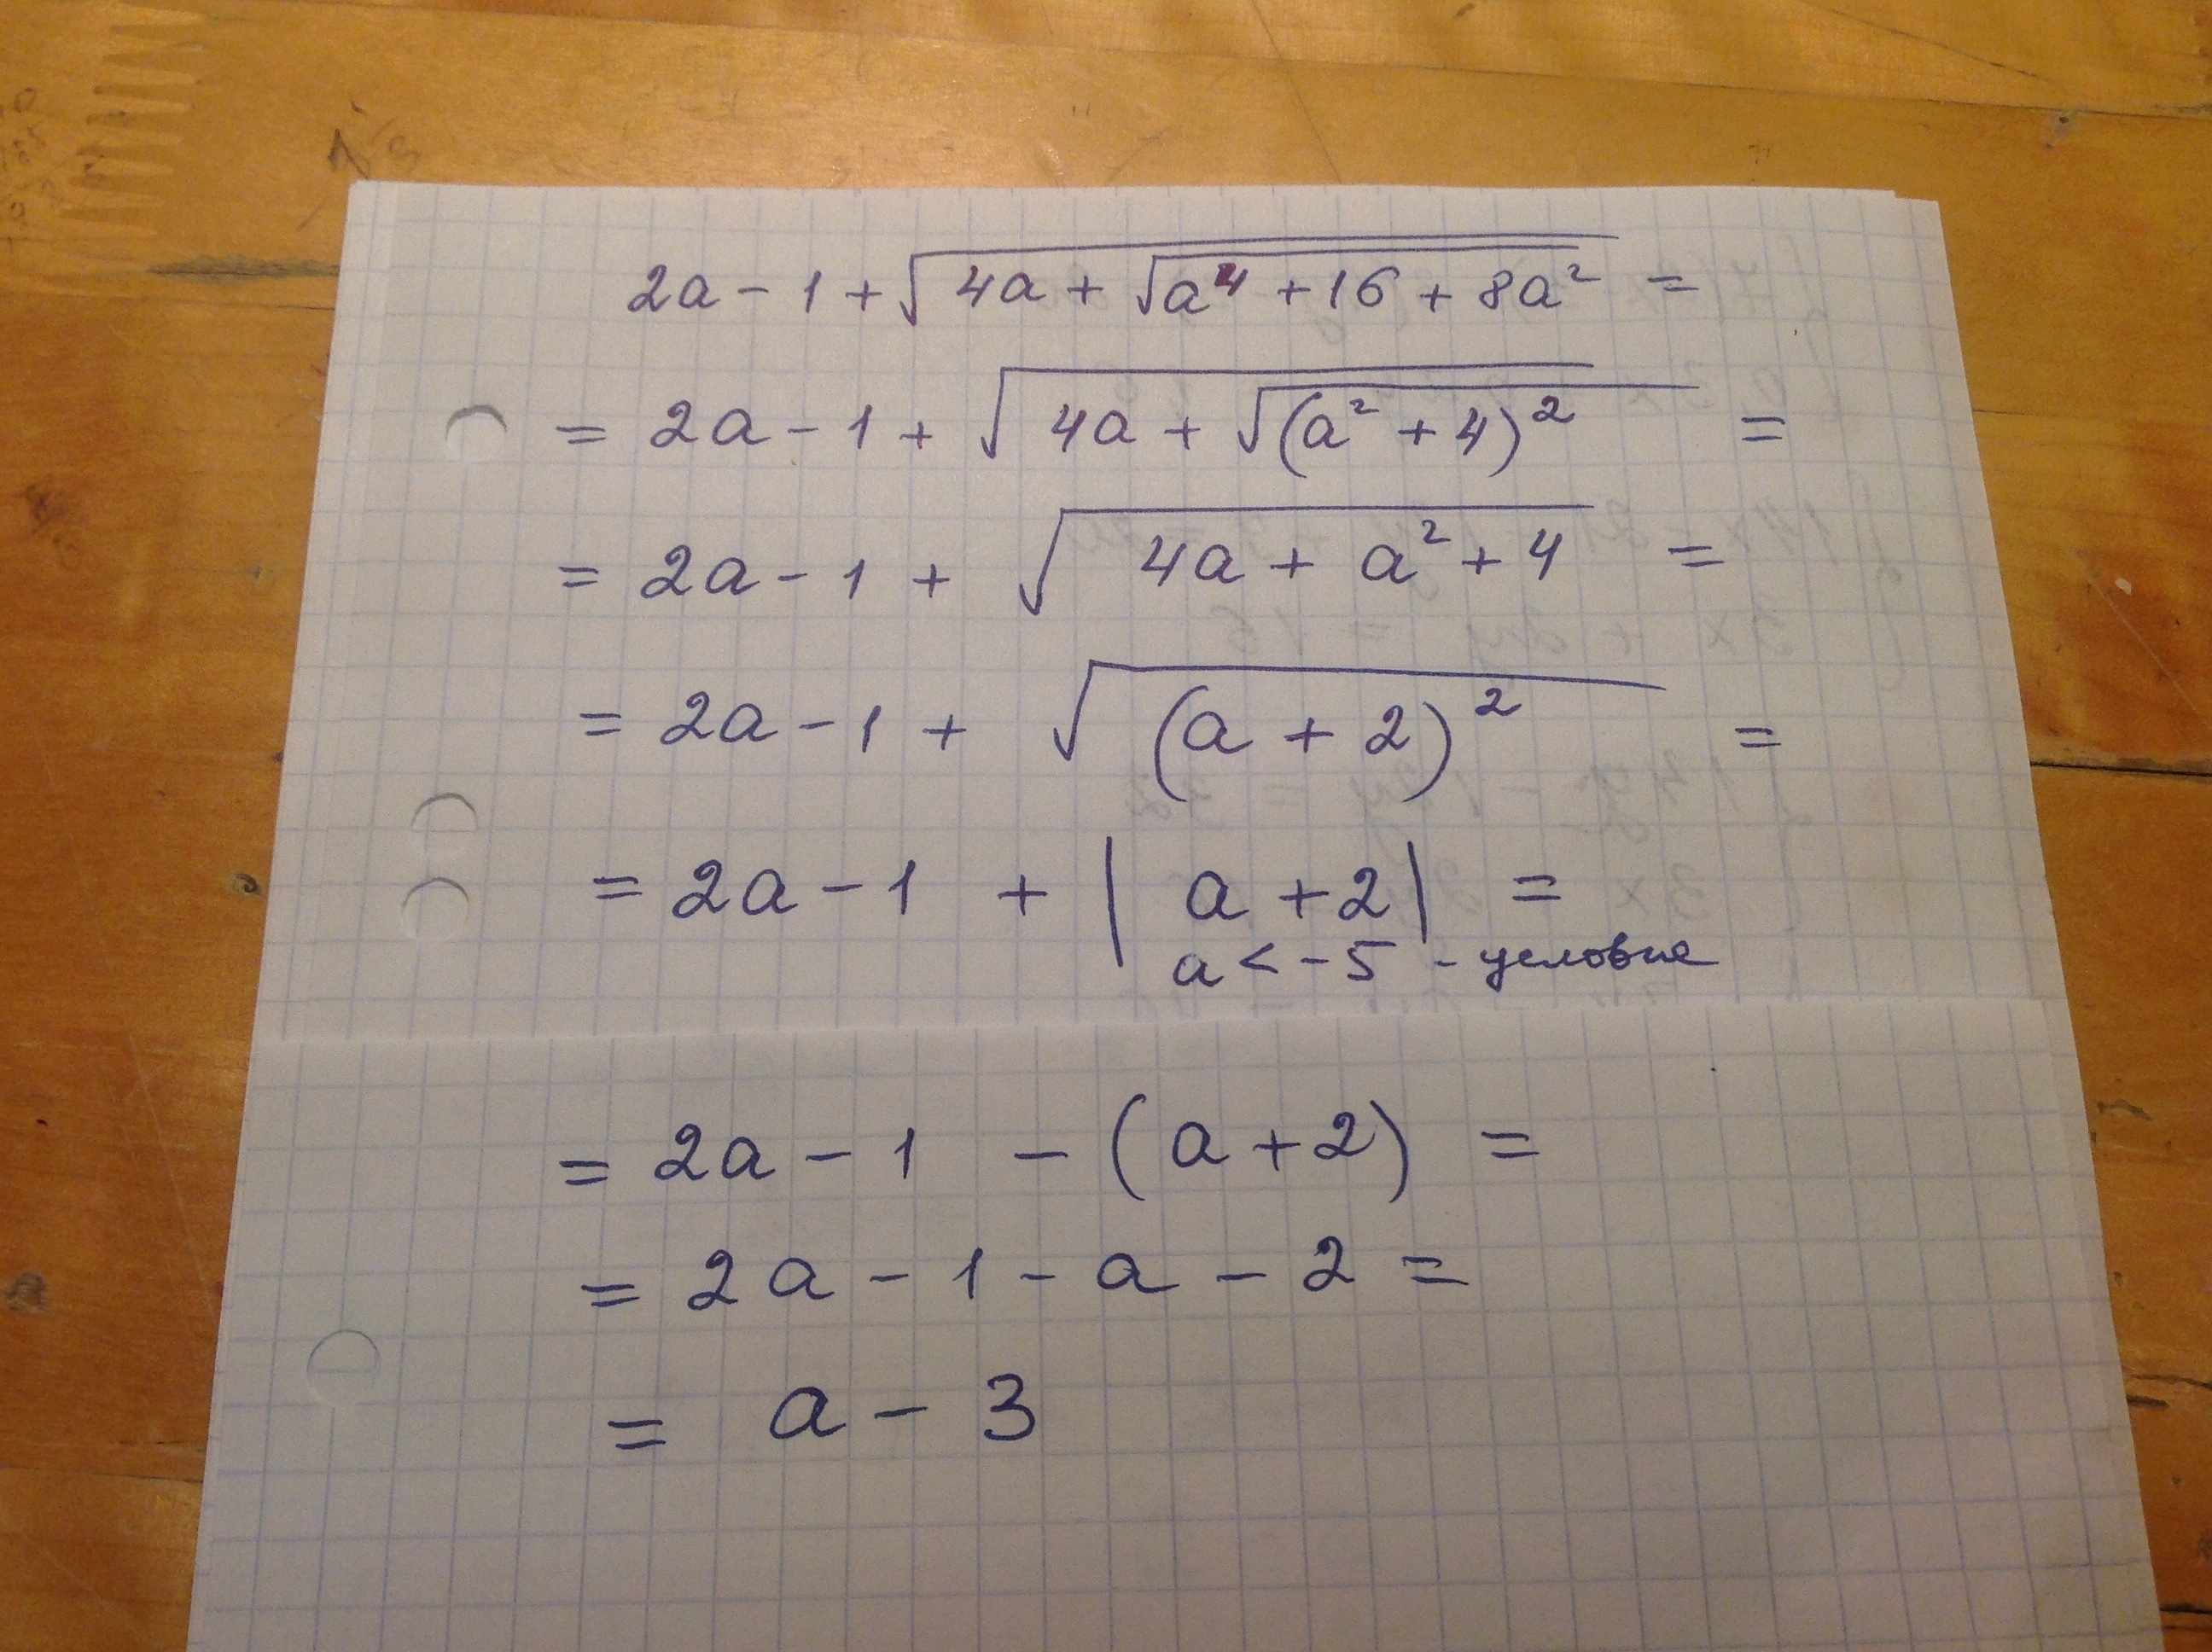 2a - 1 + √(4a + √(a⁴ + 16 + 8a²)) =
= 2a - 1 + √(4a + √((a² + 4)²)) =
= 2a - 1 + √(4a + a² + 4) =
= 2a - 1 + √((a + 2)²) =
= 2a - 1 + |a + 2| =
a < - 5 - условие
= 2a - 1 - (a + 2) =
= 2a - 1 - a - 2 =
= a - 3